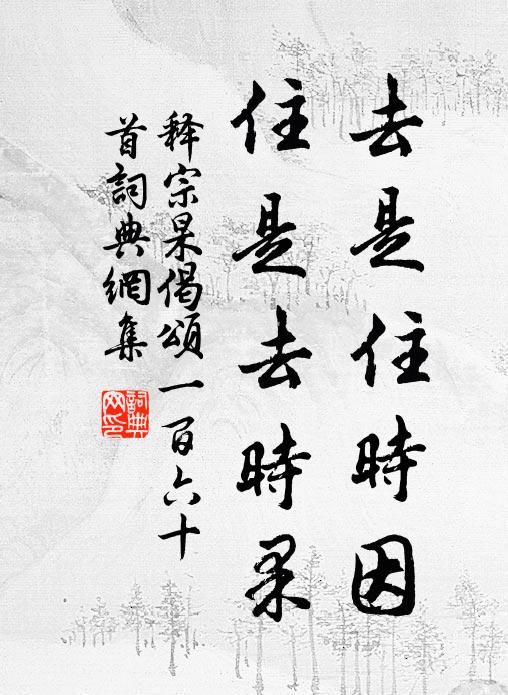 去是住時因
住是去時果
释宗杲偈頌一百六十
首詞典網集
詞典
网印